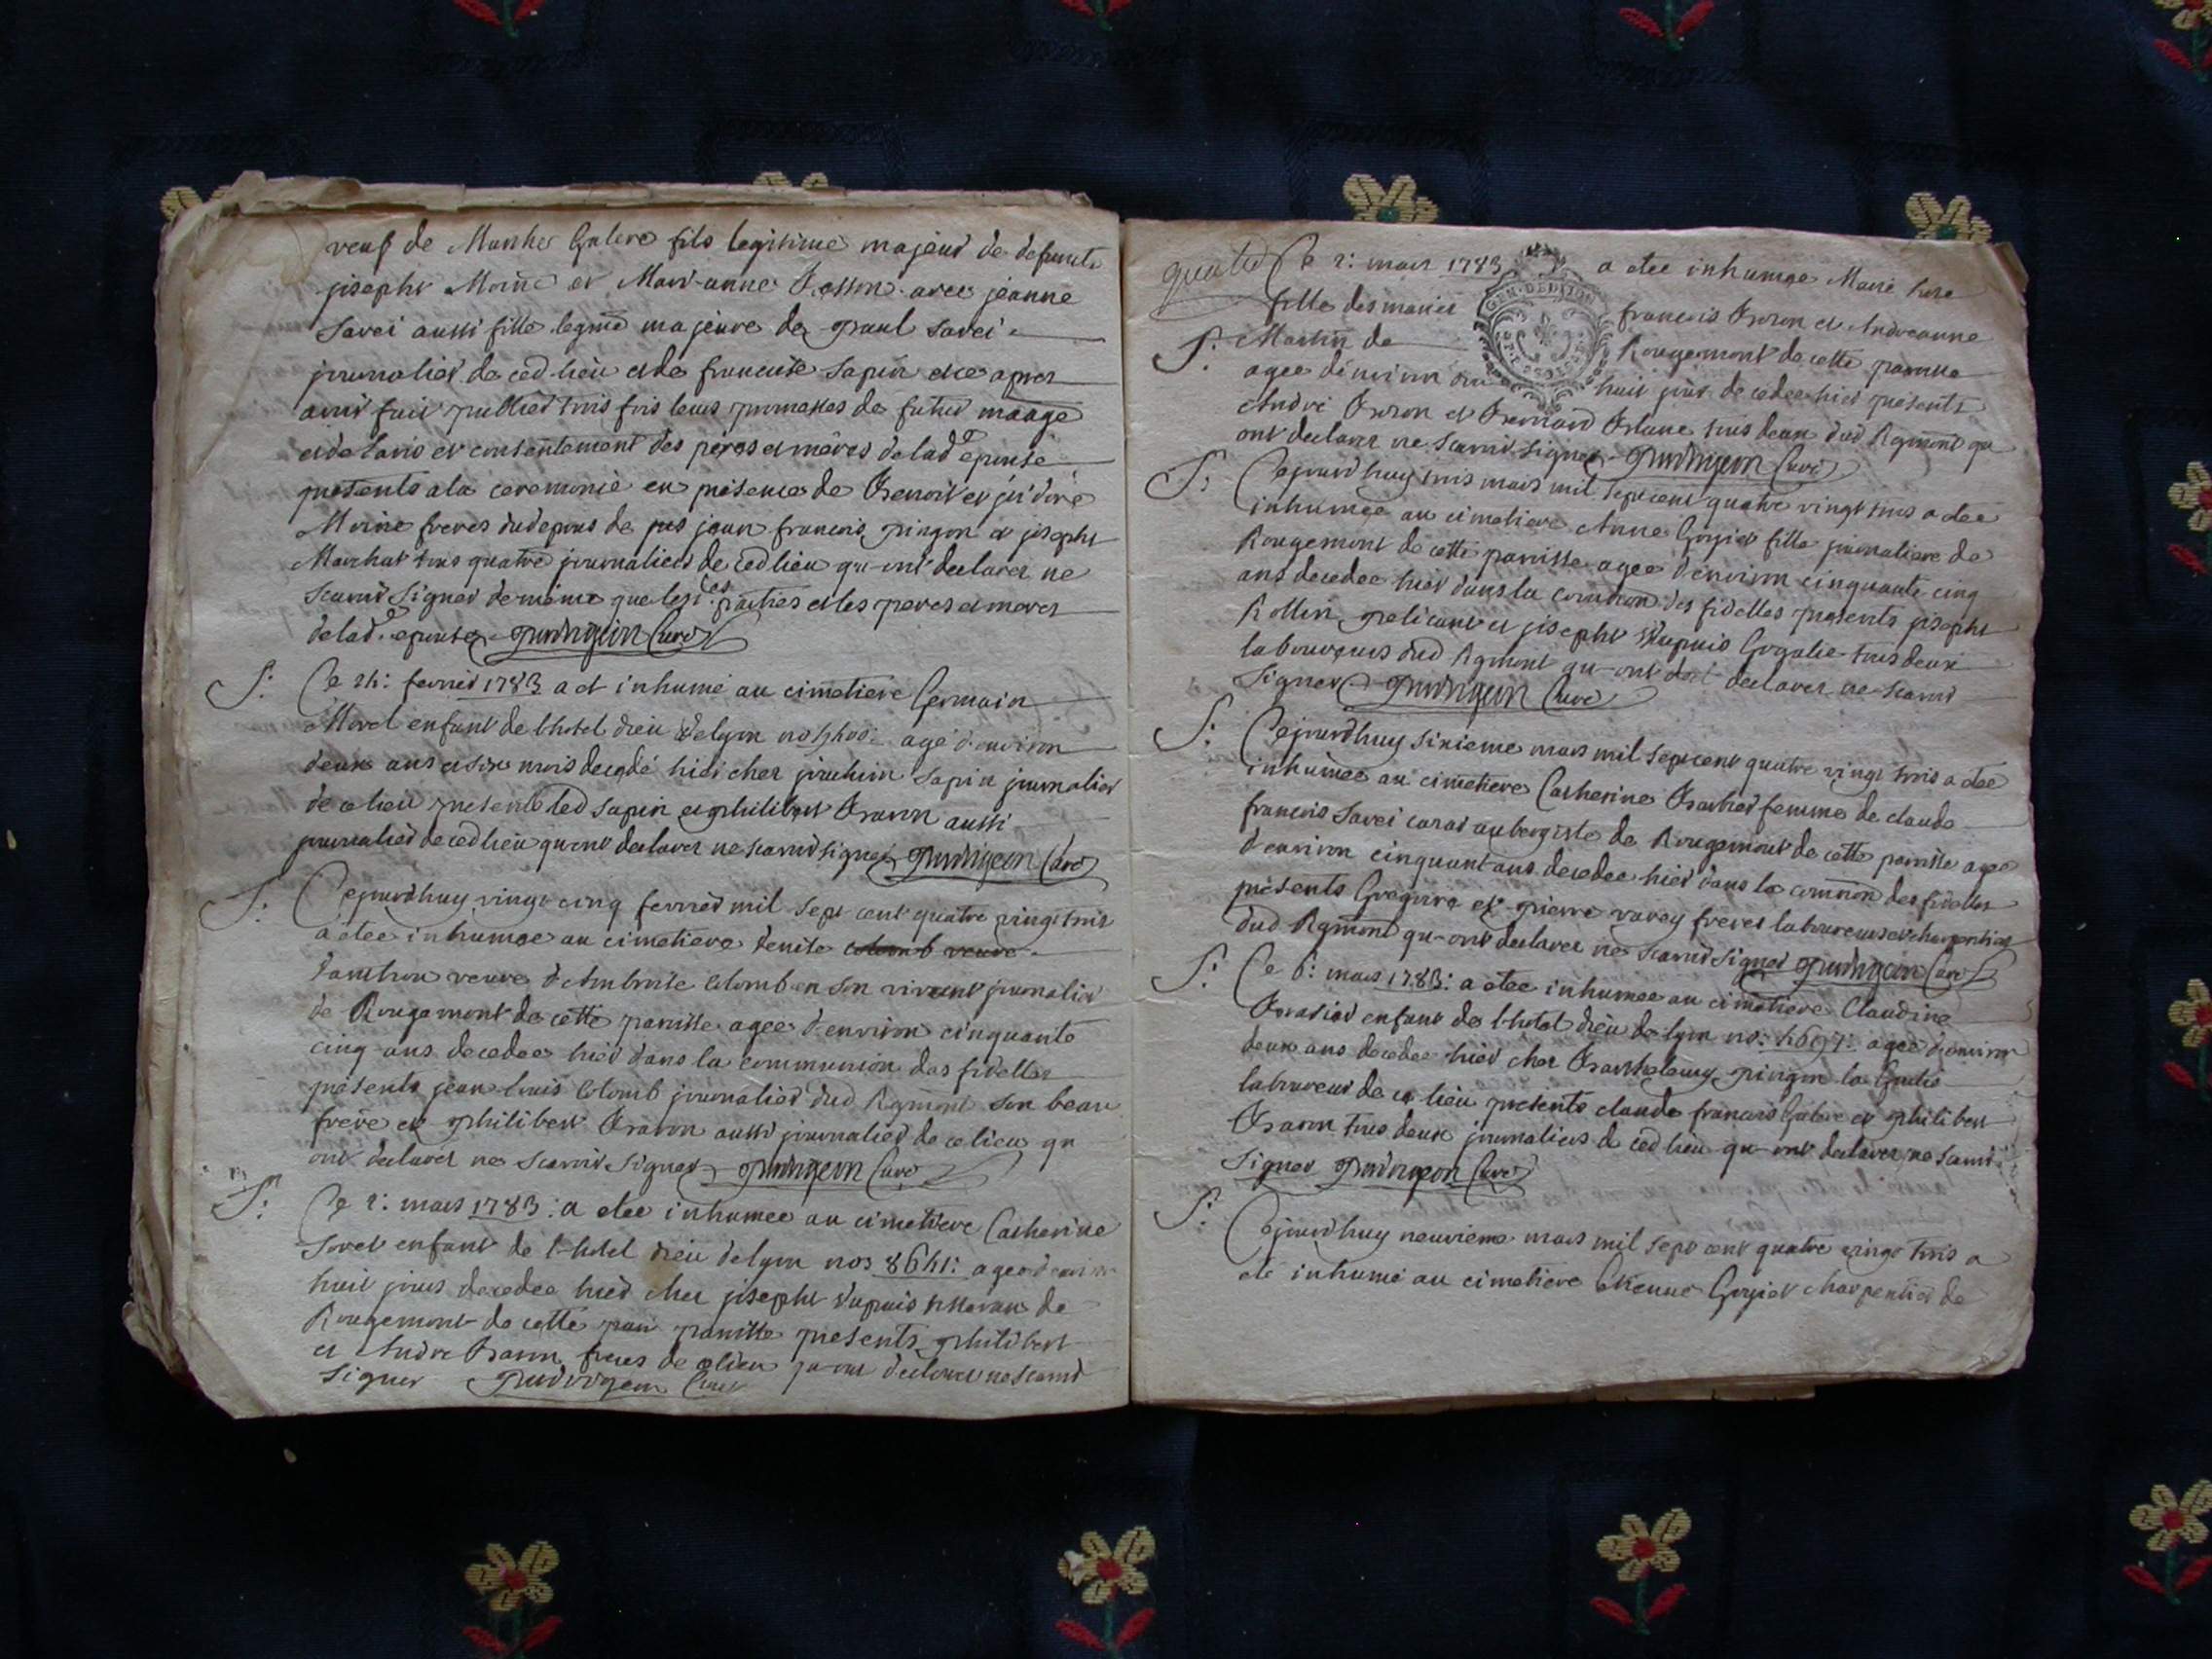 veuf de Marthe fils legitime majeur de defunts
joseph Moine et Marianne avec jeanne
savei aussi fille legme majeure de paul savei
journalier de ced lieu et de francoise sapin et ce apres
avoir fait publier trois fois leurs promesses de futur maage
et de l'avis et consentement des peres et mères de lad epouse
presents a la ceremonie en presence de Benoit et jsidore
Moine freres dud epoux de jean francois pingon et joseph
Marchat tous quatre journaliers de ced lieu qu-ont declarer ne
scavoir signer de même que les parties et les peres et meres
de lad. epouse curé
S: Ce fevrier 1783 a et inhumé au cimetiere Germain
Morel enfant de l'hotel dieu de lyon agé d'environ
deux ans et six mois decedé hier cher sapin journalier
de ce lieu presents led sapin et philibert Baron aussi
journalier de ced lieu qu'ont declarer ne scavoir signer curé
S: Cejourdhuy vingt cinq fevrier mil sept cent quatre vingt trois
a etee inhumee au cimetiere denise colomb veuve
veuve d'Ambroise colomb en son vivant journalier
de Rougemont de cette paroisse agee d'environ cinquante
cinq ans decedee hier dans la communion des fidelles
presents jean louis Colomb journalier dud Rgmont son beau
frere et philibert Baron aussi journalier de ce lieu qu
ont declarer ne scavoir signer curé
S: Ce 2: mars 1783: a etee inhumee au cimetiere Catherine
enfant de l-hotel dieu de lyon nos agee d'environ
huit jours decedee hier cher joseph dupuis de
Rougemont de cette paroisse presents philibert
et Andre Baron freres de ce lieu qu-ont declarer ne scavoir
signer curé
quatre Ce 2: mars 1783 a etee inhumee Marie
GEN. DE DIJON
fille des mariés francois Boron et Andreanne
S: Martin de Rougemont de cette paroisse
agee d'environ huit jours decedee hier presents
André Boron et Bernard tous deux dud Rgmont qu
ont declarer ne scavoir signer curé
S: Cejourdhuy trois mars mil sept cent quatre vingt trois a etee
inhumée au cimetiere Anne fille journaliere de
Rougemont de cette paroisse agee d'environ cinquante cinq
ans decedee hier dans la comūnion des fidelles presents joseph
et joseph dupuis tous deux
laboureurs dud Rgmont qu-ont declarer ne scavoir
signer curé
S: Cejourdhuy sixieme mars mil sept cent quatre vingt trois a etee
inhumee au cimetiere Catherine Barbier femme de claude
francois savei aubergiste de Rougemont de cette paroisse agee
d'environ cinquant ans decedee hier dans la comūnion des fidelles
presents Gregoire et pierre varey freres laboureur et charpentier
dud Rgmont qu-ont declarer ne scavoir signer curé
S: Ce 6: mars 1783: a etee inhumee au cimetiere Claudine
enfant de l-hotel dieu de lyon no: agee d'environ
deux ans decedee hier cher Barthelemy pingon
laboureur de ce lieu presents claude francois et philibert
Baron tous deux journaliers de ced lieu qu-ont declarer ne scavoir
signer curé
S: Cejourdhuy neuvieme mars mil sept cent quatre vingt trois a
eté inhumé au cimetiere Etienne charpentier de